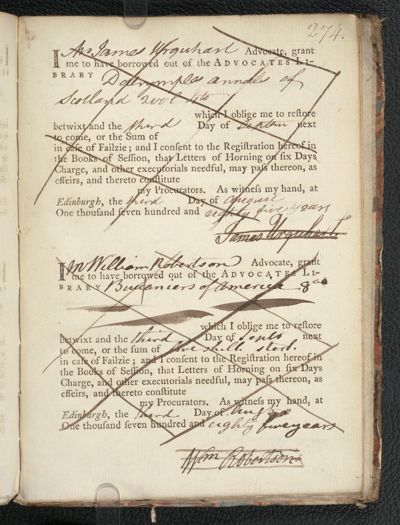 274.
I Mr James Urquhart Advocate, grant
me to have borrowed out of the ADVOCATES LI-
BRARY Dalrymples annals of
Scotland 2 vol 4to
which I oblige me to reſtore
betwixt and the third Day of next
to come, or the Sum of
in caſe of Failzie; and I conſent to the Regiſtration hereof in
the Books of Seſſion, that Letters of Horning on ſix Days
Charge, and other executorials needful, may paſs thereon, as
effeirs, and thereto conſtitute
my Procurators. As witneſs my hand, at
Edinburgh, the third Day of august
One thouſand ſeven hundred and eighty five years
James Urquhart
I Mr William Robertson Advocate, grant
me to have borrowed out of the ADVOCATES LI-
BRARY Bucaniers of america 8vo
which I oblige me to reſtore
betwixt and the third Day of next
to come, or the ſum of five sterl.
in caſe of Failzie; and I conſent to the Regiſtration hereof in
the Books of Seſſion, that Letters of Horning on ſix Days
Charge, and other executorials needful, may paſs thereon, as
effeirs, and thereto conſtitute
my Procurators. As witneſs my hand, at
Edinburgh, the third Day of
One thouſand ſeven hundred and eighty five years
Wm Robertson